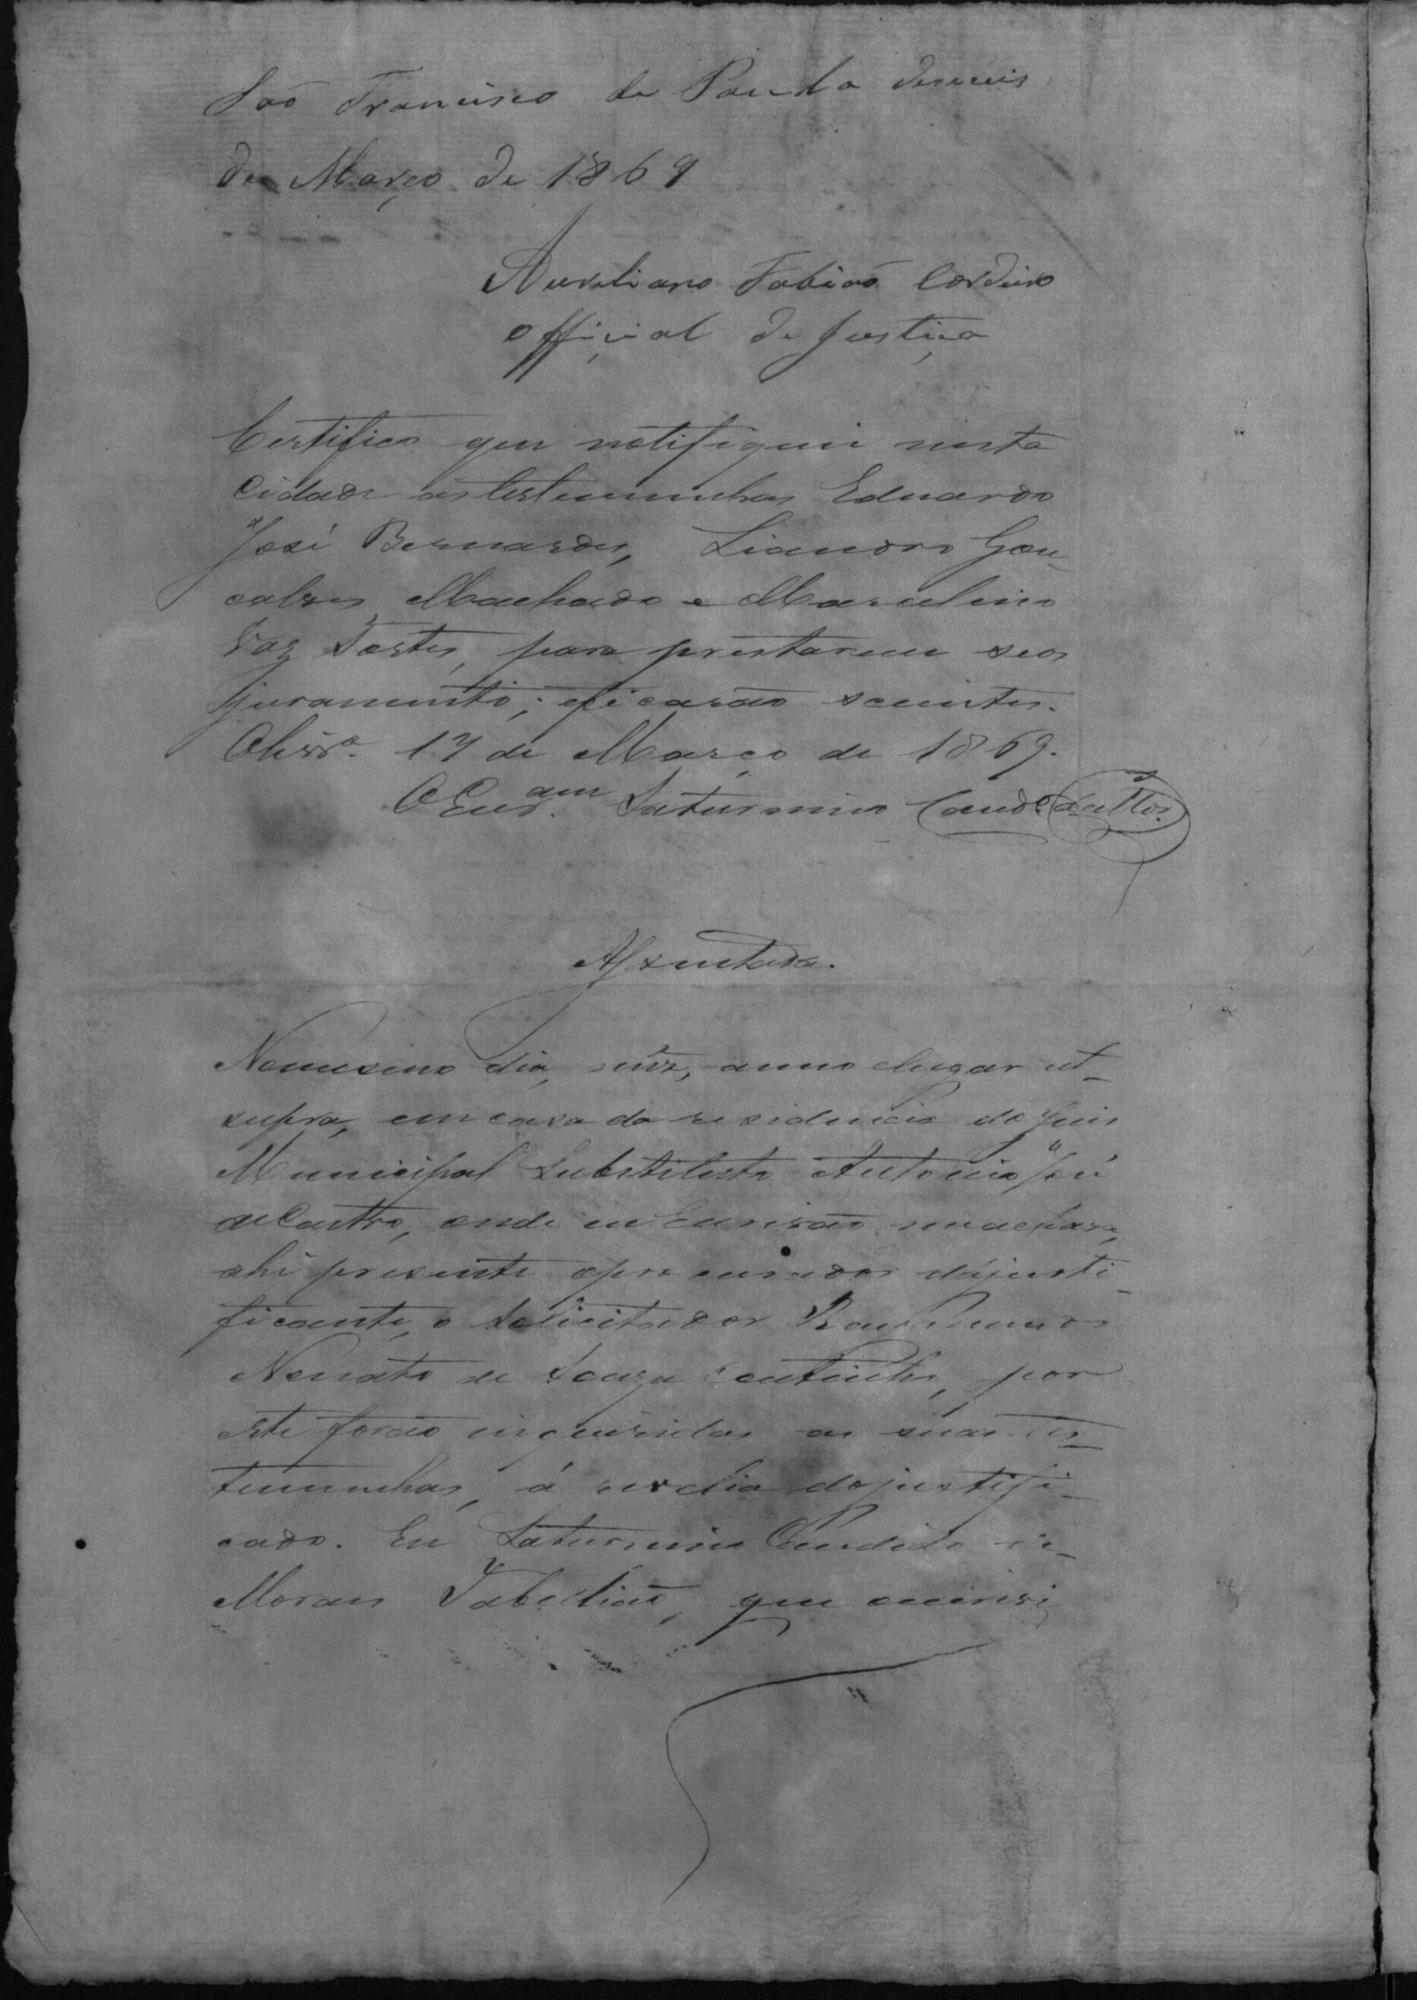 São Francisco de Paula deseceis
de Março de 1869
Aureliano Fabiaõ Cordeiro
Official de Justiça
Certifico que notifiquei nesta
Cidade as testemunhas Eduardo
José Bernardes, Leandro Gon-
calves Machado e Marculino
Vaz Tostes, para prestarem seos
juramento; eficarão scientes.
17 de Março de 1869.
Saturnino Cand.º
Assentada.
Nomesmo dia, mez, anno elugar ut-
supra, em casa da residencia do Juis
Municipal Substituto Antonio José
de Castro, onde eu Escrivão me achava,
ahi presente o procurador dajusti-
ficante, o Solicitador Raymundo
Nonato de Souza Coutinho, por
este forão inqueridas as suas tes-
temunhas, á revelia dojustifi-
cado. Eu Saturnino Candido de
Moraes Tabelliaõ, que escrevi